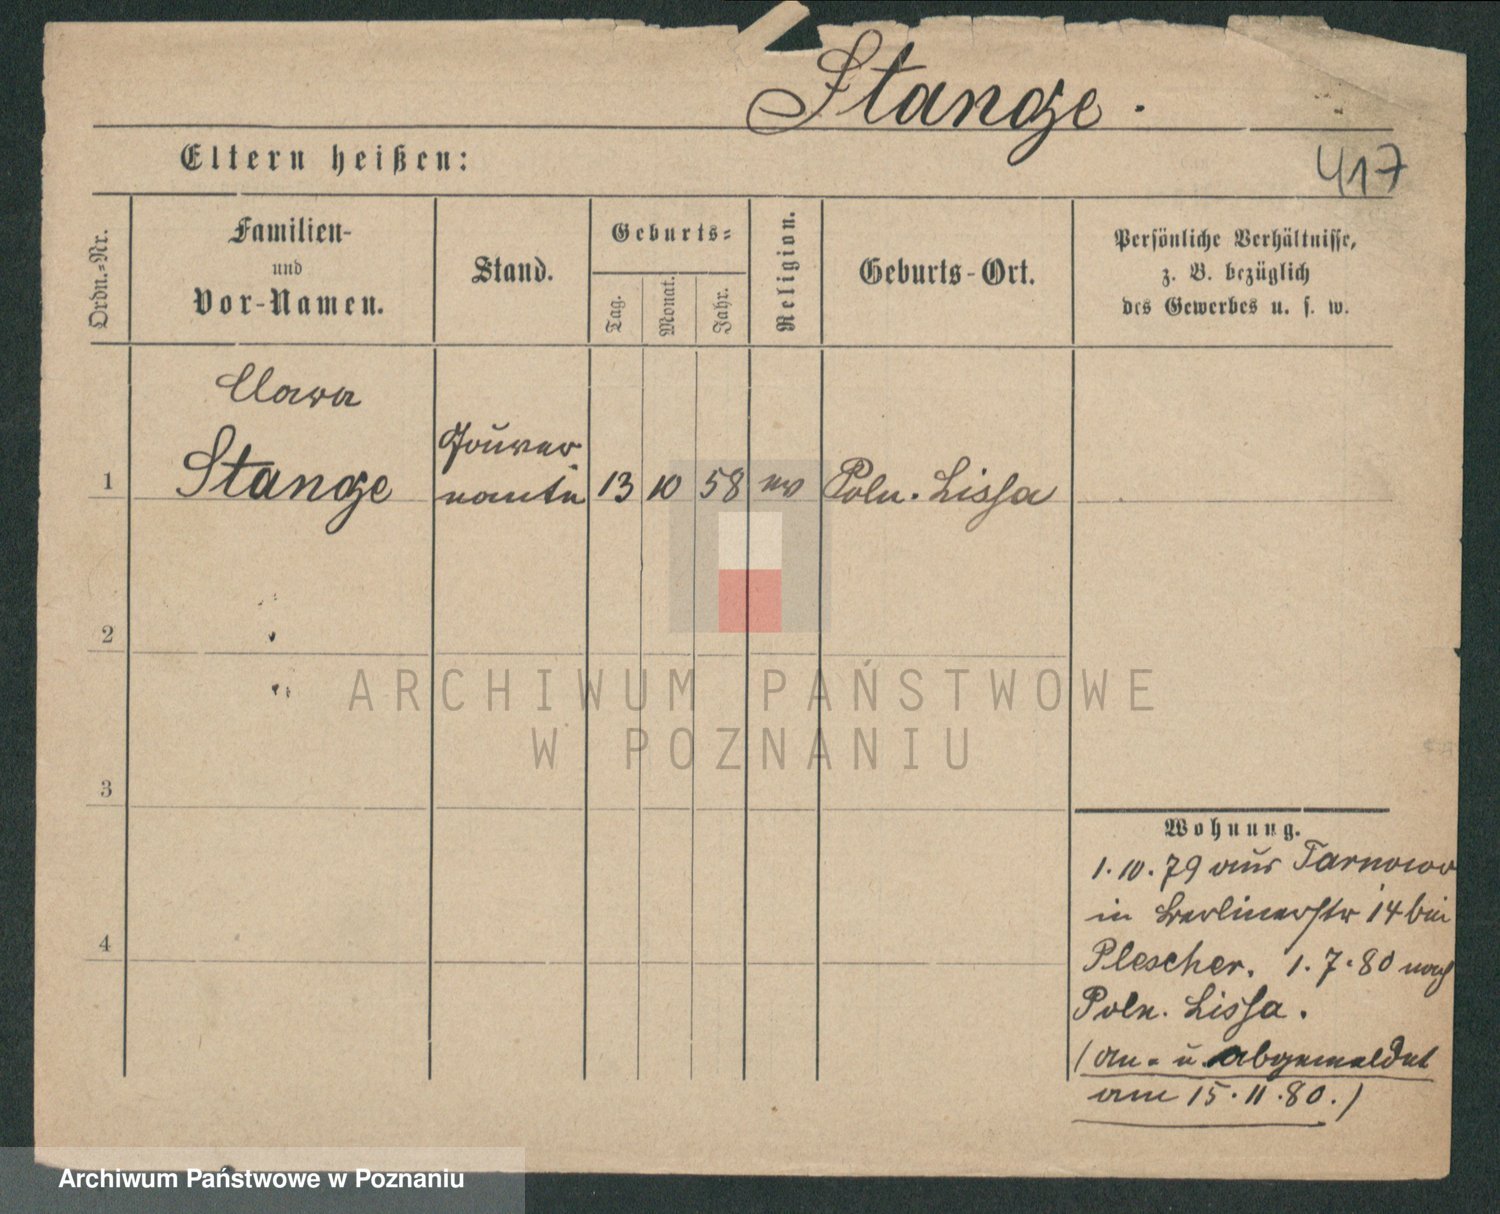 Stange.
417
Eltern heißen:
Ordn.-Nr.
Familien-
und
Vor-Namen.
Stand.
Geburts-
Tag.
Monat.
Jahr.
Religion.
Geburts-Ort.
Persönliche Verhältnisse,
z. B. bezüglich
des Gewerbes u. s. w.
Clara
Stange
Gouver
nante
1
13
10
58
ev
Poln. Lissa
2
3
4
ARCHIWUM PAŃSTWOWE
W POZNANIU
Wohnung.
1.10.79 aus Tarnowo
in Berlinerstr 14 bei
Plescher. 1.7.80 nach
Poln. Lissa.
(an- u. abgemeldet
am 15.11.80.)
Archiwum Państwowe w Poznaniu